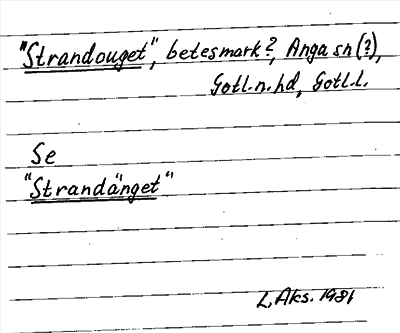 "Strandouget", betesmark?, Anga sn (?),
Gotl. n. hd, Gotl. l.
Se
"Strandänget"
L. Aks. 1981